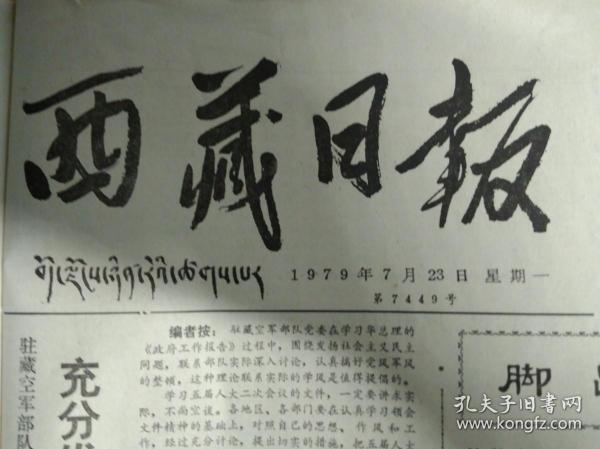 西藏日报
བོད་ལྗོངས་ཉིན་རེའི་ཚགས་པར
1979年7月23日 星期一
第7449号
驻藏空军部队
充分发
编者按：驻藏空军部队党委在学习华总理的
《政府工作报告》过程中，围绕发扬社会主义民主
问题，联系部队实际深入讨论，认真搞好党风军风
的整顿，这种理论联系实际的学风是值得提倡的。
学习五届人大二次会议的文件，一定要讲求实
际，不尚空谈。各地区、各部门要在认真学习领会
文件精神的基础上，对照自己的思想、作风和工
作，经过充分讨论，提出切实的措施，把五届人大
脚
孔夫子旧书网
孔夫子旧书网